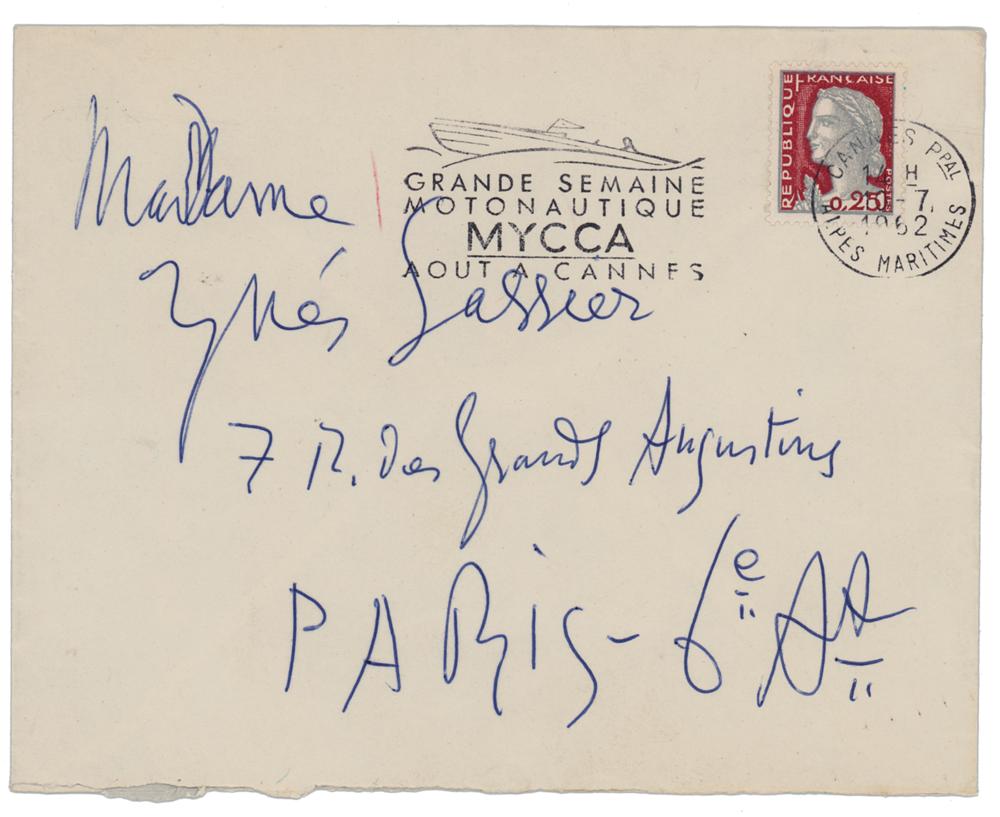 GRANDE SEMAINE
MOTONAUTIQUE
MYCCA
AOUT A CANNES
REPUBLIQUE FRANCAISE
POSTES
0,25
CANNES PPAL
H
-7
1962
ALPES MARITIMES
Madame
Ynés Sassier
7 R. des Grands Augustins
PARIS - 6e Arrt